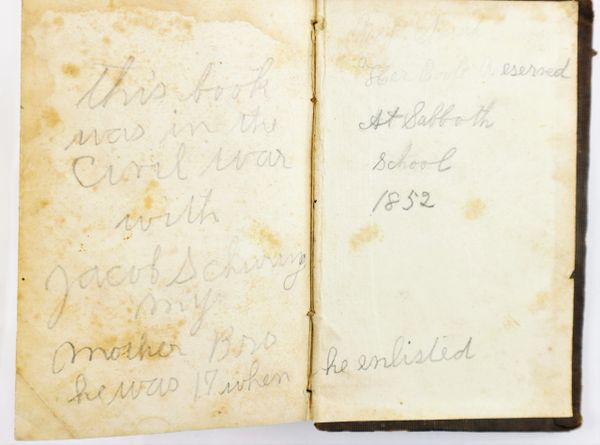 this book
was in the
Civil war
with
Jacob Schwarz
my
Mother Bro
he was 17 when he enlisted
Her Book Reserved
At Sabbath
School
1852